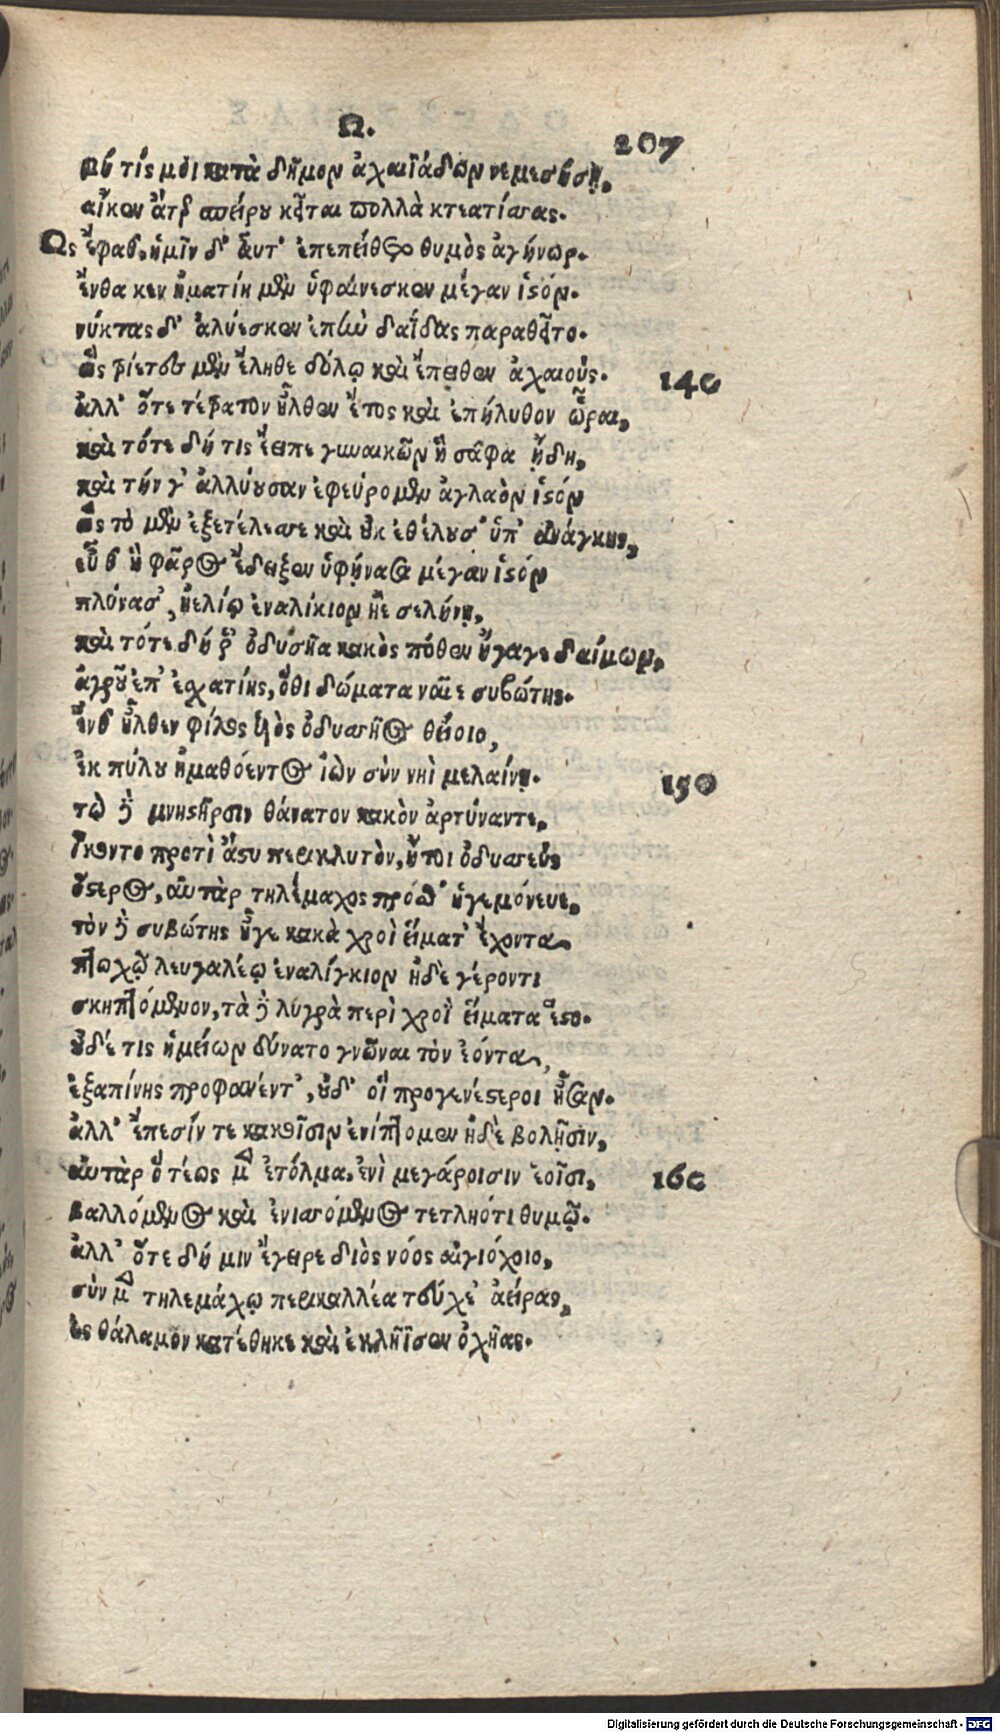 Ω.
207
μή τίς μοι κατὰ δῆμον ἀχαιϊάδων νεμεσήσῃ,
αἴκεν ἄτερ σπείρου κεῖται πολλὰ κτεατίσσας.
Ως ἔφατ', ἡμῖν δ' αὖτ' ἐπεπείθετο θυμὸς ἀγήνωρ.
ἔνθα κεν ἠματίη μὲν ὑφαίνεσκεν μέγαν ἱστόν.
νύκτας δ' ἀλύεσκεν ἐπὴν δαΐδας παραθεῖτο.
ὣς τρίετες μὲν ἔληθε δόλῳ καὶ ἔπειθεν ἀχαιούς.
140
ἀλλ' ὅτε τέτρατον ἦλθεν ἔτος καὶ ἐπήλυθον ὧραι,
καὶ τότε δή τις ἔειπε γυναικῶν ἣ σάφα ᾔδη,
καὶ τήν γ' ἀλλύουσαν ἐφεύρομεν ἀγλαὸν ἱστόν
ὣς τὸ μὲν ἐξετέλεσσε καὶ οὐκ ἐθέλουσ' ὑπ' ἀνάγκης,
εὖθ' ἣ φᾶρος ἔδειξεν ὑφήνασα μέγαν ἱστόν
πλύνασ', ἠελίῳ ἐναλίκιον ἠὲ σελήνῃ,
καὶ τότε δή ῥ' ὀδυσῆα κακὸς πόθεν ἤγαγε δαίμων,
ἀγροῦ ἐπ' ἐσχατίης, ὅθι δώματα ναῖε συβώτης.
ἔνθ' ἦλθεν φίλος υἱὸς ὀδυσσῆος θείοιο,
ἐκ πύλου ἠμαθόεντος ἰὼν σὺν νηῒ μελαίνῃ.
150
τὼ δὲ μνηστῆρσιν θάνατον κακὸν ἀρτύναντε,
ἵκοντο προτὶ ἄστυ περικλυτὸν, ἤτοι ὀδυσσεὺς
ὕστερος, αὐτὰρ τηλέμαχος πρόσθ' ἡγεμόνευε,
τὸν δὲ συβώτης ἦγε κακὰ χροῒ εἵματ' ἔχοντα
πτωχῷ λευγαλέῳ ἐναλίγκιον ἠδὲ γέροντι
σκηπτόμενον, τὰ δὲ λυγρὰ περὶ χροῒ εἵματα ἕστο.
οὐδέ τις ἡμείων δύνατο γνῶναι τὸν ἐόντα,
ἐξαπίνης προφανέντ', οὐδ' οἳ προγενέστεροι ἦσαν.
ἀλλ' ἔπεσίν τε κακοῖσιν ἐνίπτομεν ἠδὲ βολῇσιν,
αὐτὰρ ὃ τέως μὲν ἐτόλμα ἐνὶ μεγάροισιν ἑοῖσι,
160
βαλλόμενος καὶ ἐνισσόμενος τετληότι θυμῷ.
ἀλλ' ὅτε δή μιν ἔγειρε διὸς νόος αἰγιόχοιο,
σὺν μὲν τηλεμάχῳ περικαλλέα τεύχε' ἀείρας,
ἐς θάλαμον κατέθηκε καὶ ἐκλήϊσεν ὀχῆας.
Digitalisierung gefördert durch die Deutsche Forschungsgemeinschaft - DFG